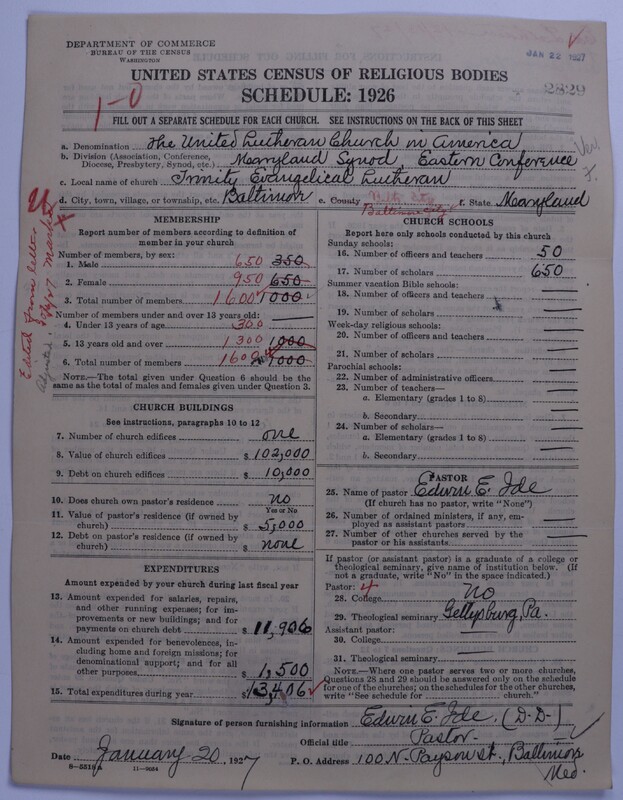 DEPARTMENT OF COMMERCE
BUREAU OF THE CENSUS
WASHINGTON
JAN 22 1927
UNITED STATES CENSUS OF RELIGIOUS BODIES
SCHEDULE: 1926
2829
1-0
FILL OUT A SEPARATE SCHEDULE FOR EACH CHURCH. SEE INSTRUCTIONS ON THE BACK OF THIS SHEET
a. Denomination The United Lutheran Church in America
b. Division (Association, Conference, Diocese, Presbytery, Synod, etc.) Maryland Synod, Eastern Conference
c. Local name of church Trinity Evangelical Lutheran
d. City, town, village, or township, etc. Baltimore e. County Baltimore City f. State Maryland
MEMBERSHIP
Report number of members according to definition of member in your church
Number of members, by sex:
1. Male 650 350
2. Female 950 650
3. Total number of members 1600 1000
Number of members under and over 13 years old:
4. Under 13 years of age 300
5. 13 years old and over 1300 1000
6. Total number of members 1600 1000
NOTE.—The total given under Question 6 should be the same as the total of males and females given under Question 3.
CHURCH BUILDINGS
See instructions, paragraphs 10 to 12
7. Number of church edifices one
8. Value of church edifices $ 102,000
9. Debt on church edifices $ 10,000
10. Does church own pastor's residence No
Yes or No
11. Value of pastor's residence (if owned by church) $ 5,000
12. Debt on pastor's residence (if owned by church) $ none
EXPENDITURES
Amount expended by your church during last fiscal year
13. Amount expended for salaries, repairs, and other running expenses; for improvements or new buildings; and for payments on church debt $ 11,906
14. Amount expended for benevolences, including home and foreign missions; for denominational support; and for all other purposes $ 1,500
15. Total expenditures during year $ 13,406
CHURCH SCHOOLS
Report here only schools conducted by this church
Sunday schools:
16. Number of officers and teachers 50
17. Number of scholars 650
Summer vacation Bible schools:
18. Number of officers and teachers
19. Number of scholars
Week-day religious schools:
20. Number of officers and teachers
21. Number of scholars
Parochial schools:
22. Number of administrative officers
23. Number of teachers—
a. Elementary (grades 1 to 8)
b. Secondary
24. Number of scholars—
a. Elementary (grades 1 to 8)
b. Secondary
PASTOR
25. Name of pastor Edwin E. Ide
(If church has no pastor, write "None")
26. Number of ordained ministers, if any, employed as assistant pastors
27. Number of other churches served by the pastor or his assistants
If pastor (or assistant pastor) is a graduate of a college or theological seminary, give name of institution below. (If not a graduate, write "No" in the space indicated.)
Pastor: 4
28. College No
29. Theological seminary Gettysburg, Pa.
Assistant pastor:
30. College
31. Theological seminary
NOTE.—Where one pastor serves two or more churches, Questions 28 and 29 should be answered only on the schedule for one of the churches; on the schedules for the other churches, write "See schedule for church."
Signature of person furnishing information Edwin E. Ide. (D.D.)
Official title Pastor
Date January 20, 1927 P. O. Address 100 N. Payson St., Baltimore Md.
8—5518 a 11—9034